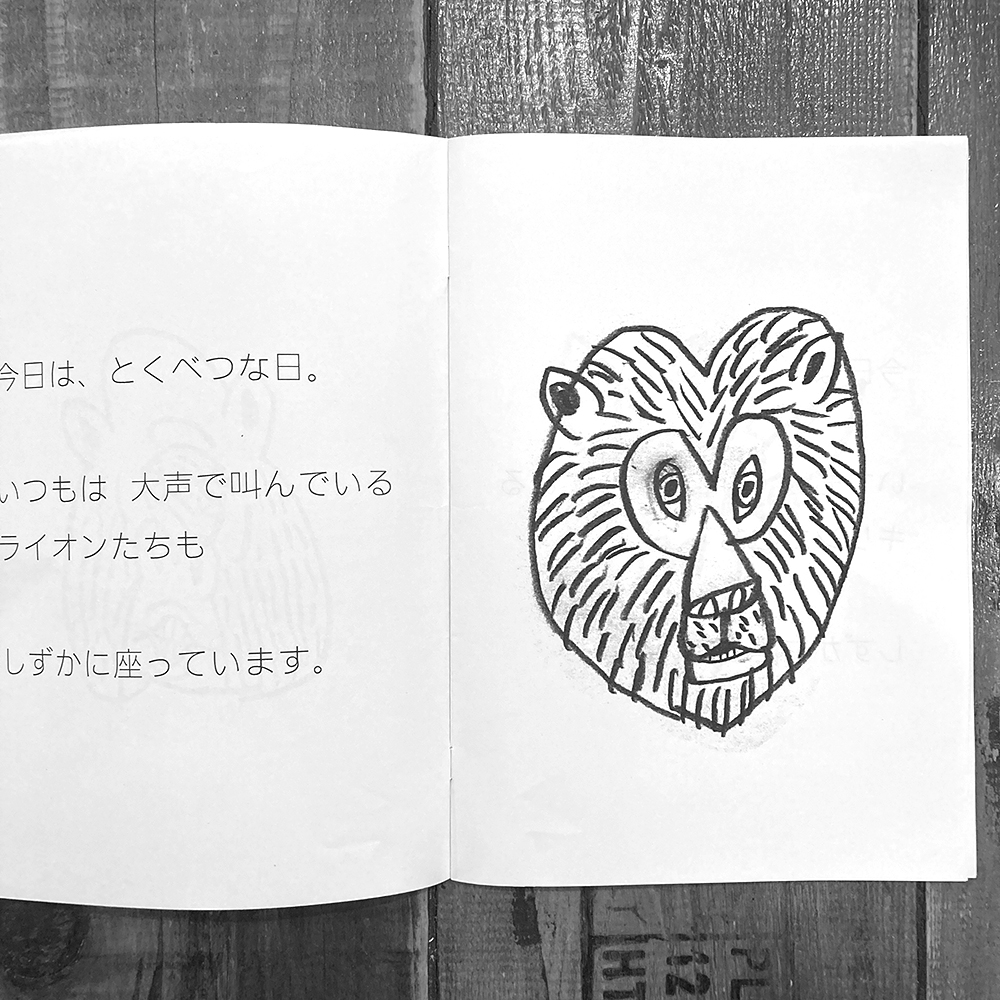 今日は、とくべつな日。
いつもは 大声で叫んでいる
ライオンたちも
しずかに座っています。
PL
12
HT